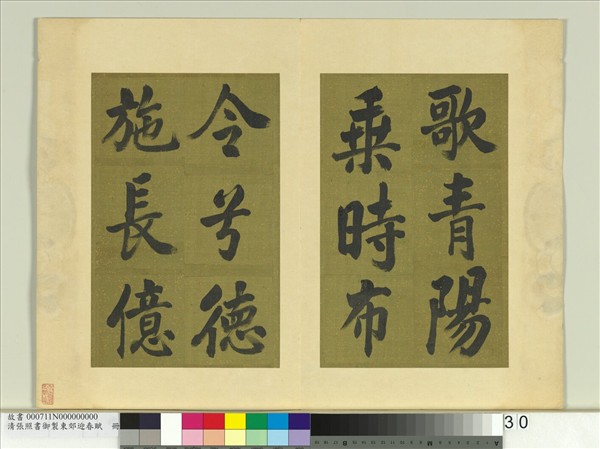 歌青陽
乗時布
令兮德
施長億
故書 000711N000000000
清張照書御製東郊迎春賦 冊
30